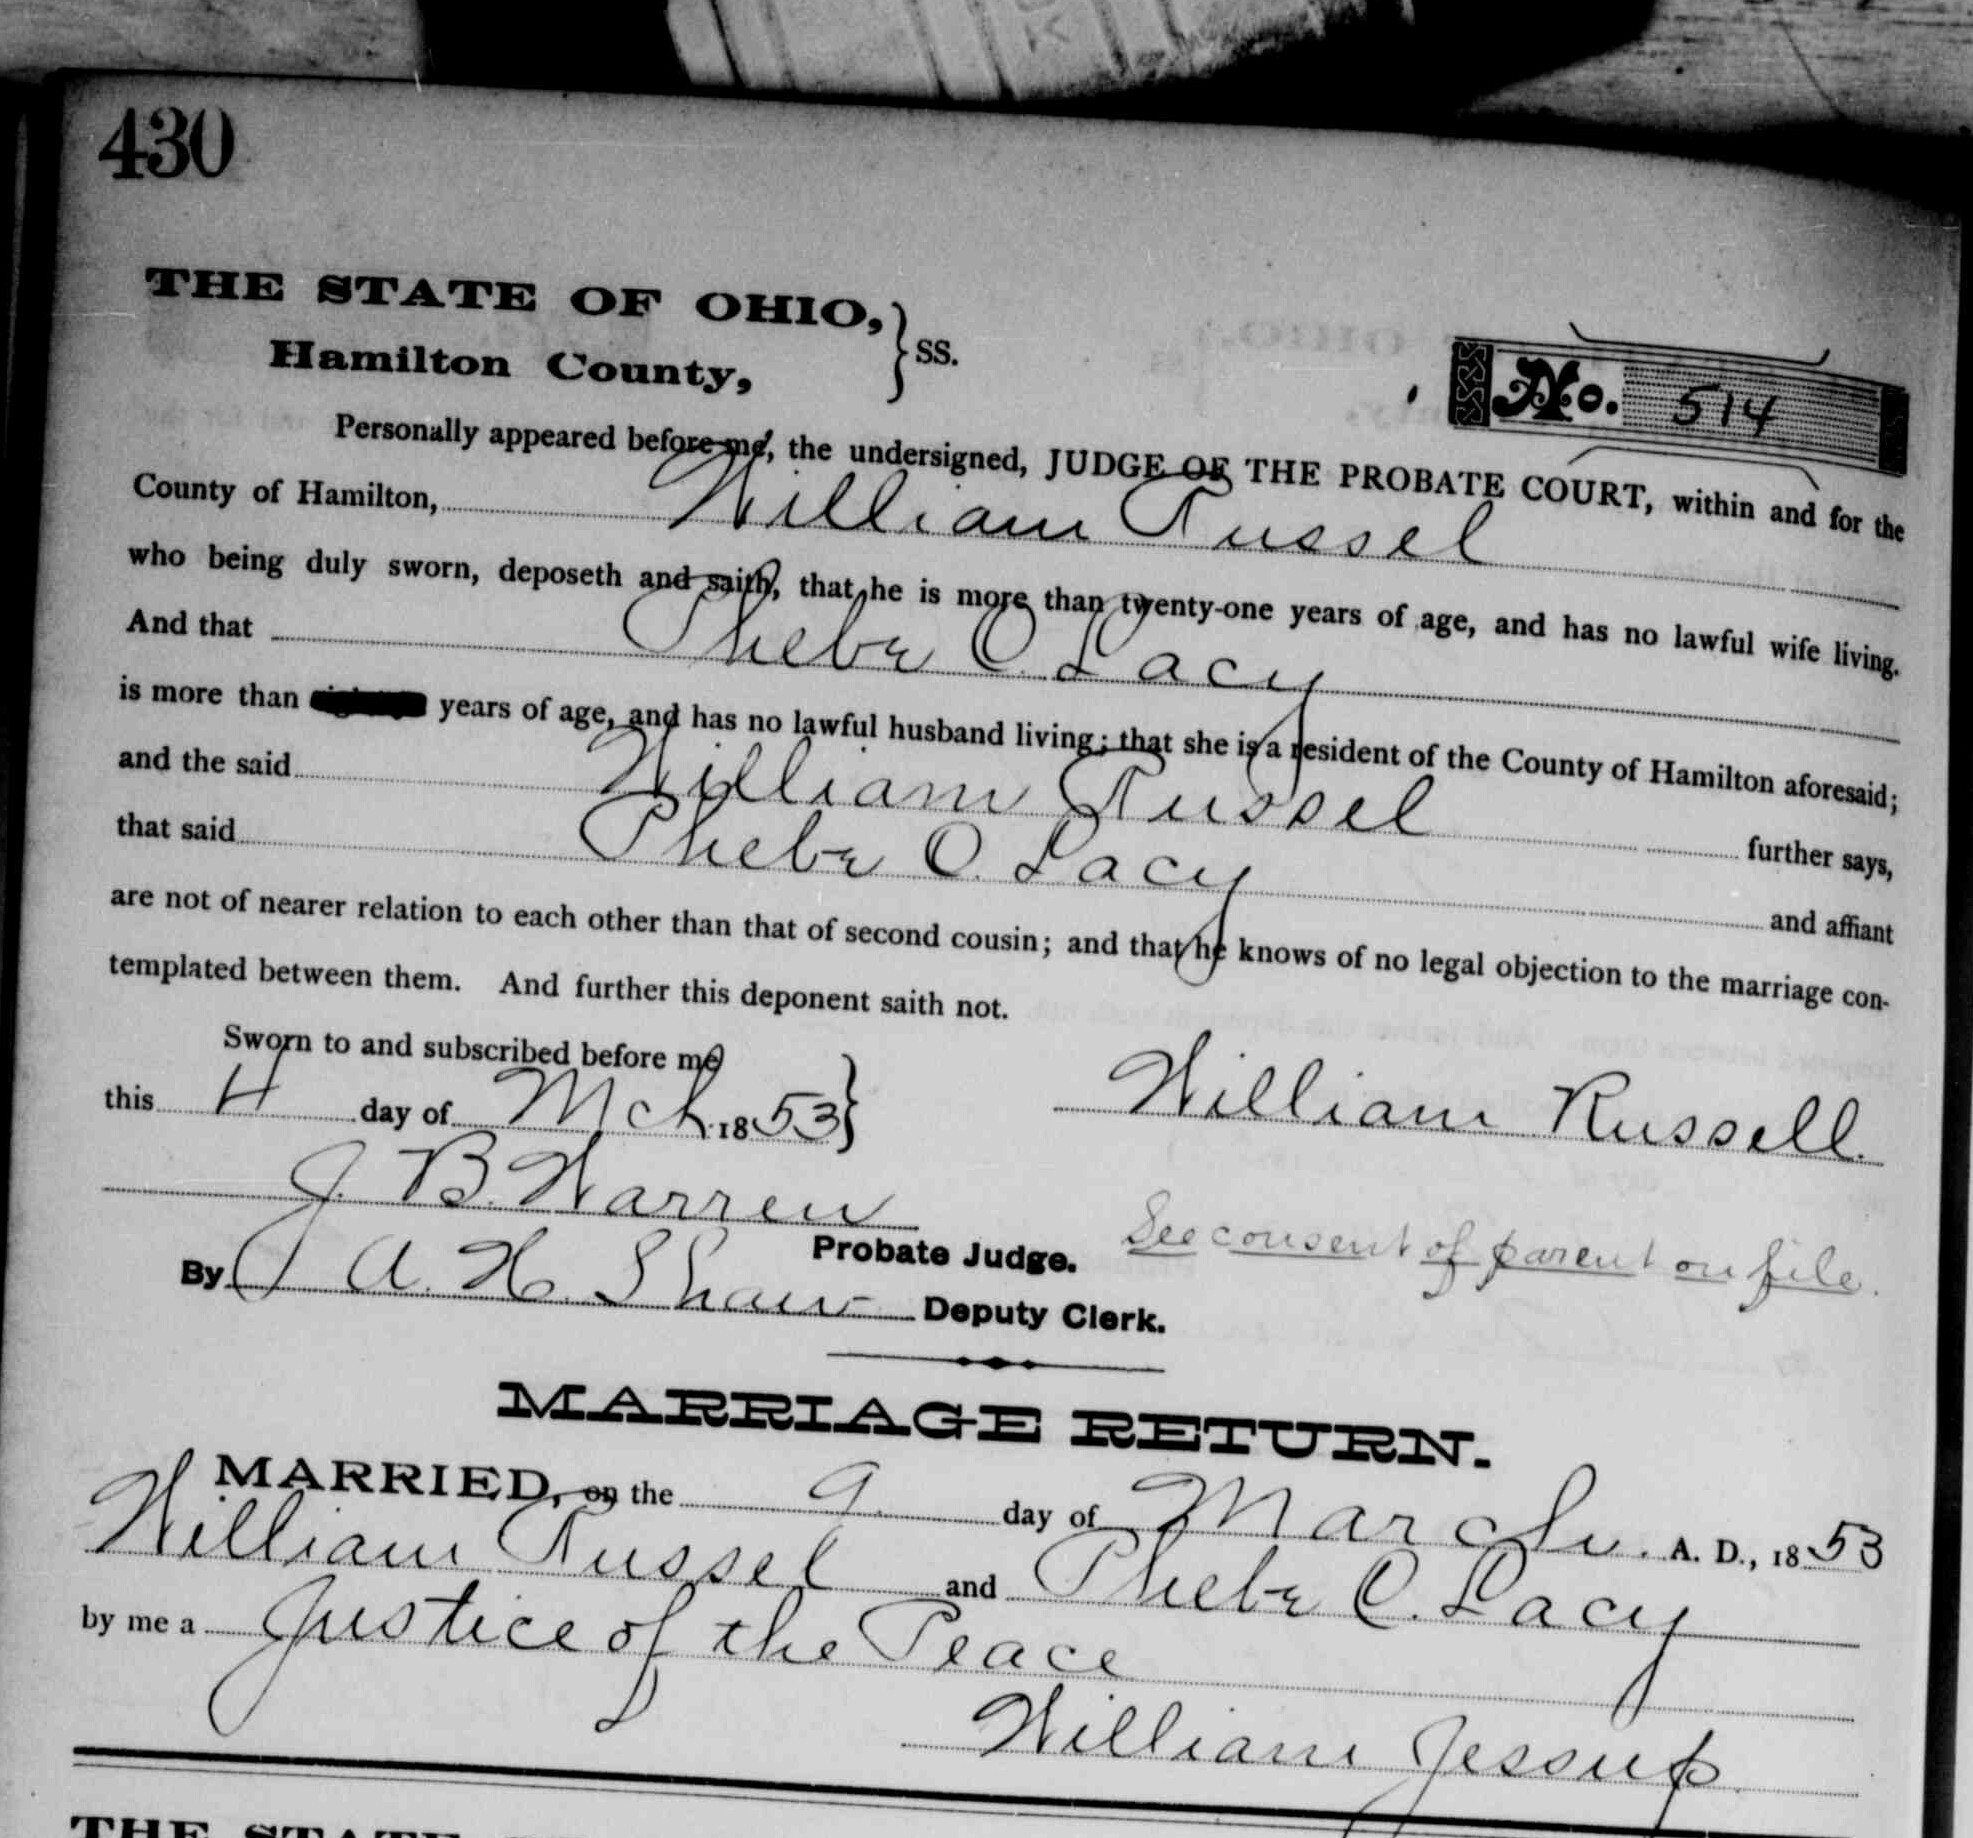 430
THE STATE OF OHIO,
Hamilton County,
} SS.
No. 514
Personally appeared before me, the undersigned, JUDGE OF THE PROBATE COURT, within and for the
County of Hamilton, William Russel
who being duly sworn, deposeth and saith, that he is more than twenty-one years of age, and has no lawful wife living.
And that Phebe C. Lacy
is more than years of age, and has no lawful husband living; that she is a resident of the County of Hamilton aforesaid;
and the said William Russel further says,
that said Phebe C. Lacy and affiant
are not of nearer relation to each other than that of second cousin; and that he knows of no legal objection to the marriage con-
templated between them. And further this deponent saith not.
Sworn to and subscribed before me
this 4 day of Mch 1853 }
William Russell.
J. B. Warren
Probate Judge.
See consent of parent on file.
By A. H. Shaw Deputy Clerk.
MARRIAGE RETURN.
MARRIED, on the 9. day of March. A. D., 1853
William Russel and Phebe C. Lacy
by me a Justice of the Peace
William Jessup
THE STATE